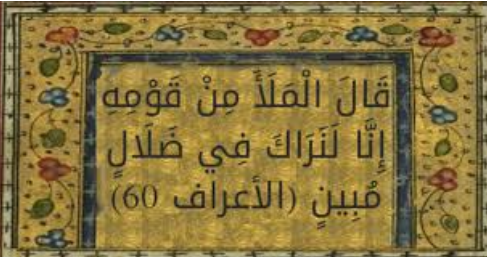 قَالَ الْمَلَأُ مِنْ قَوْمِهِ
إِنَّا لَنَرَاكَ فِي ضَلَالٍ
مُبِينٍ (الأعراف 60)